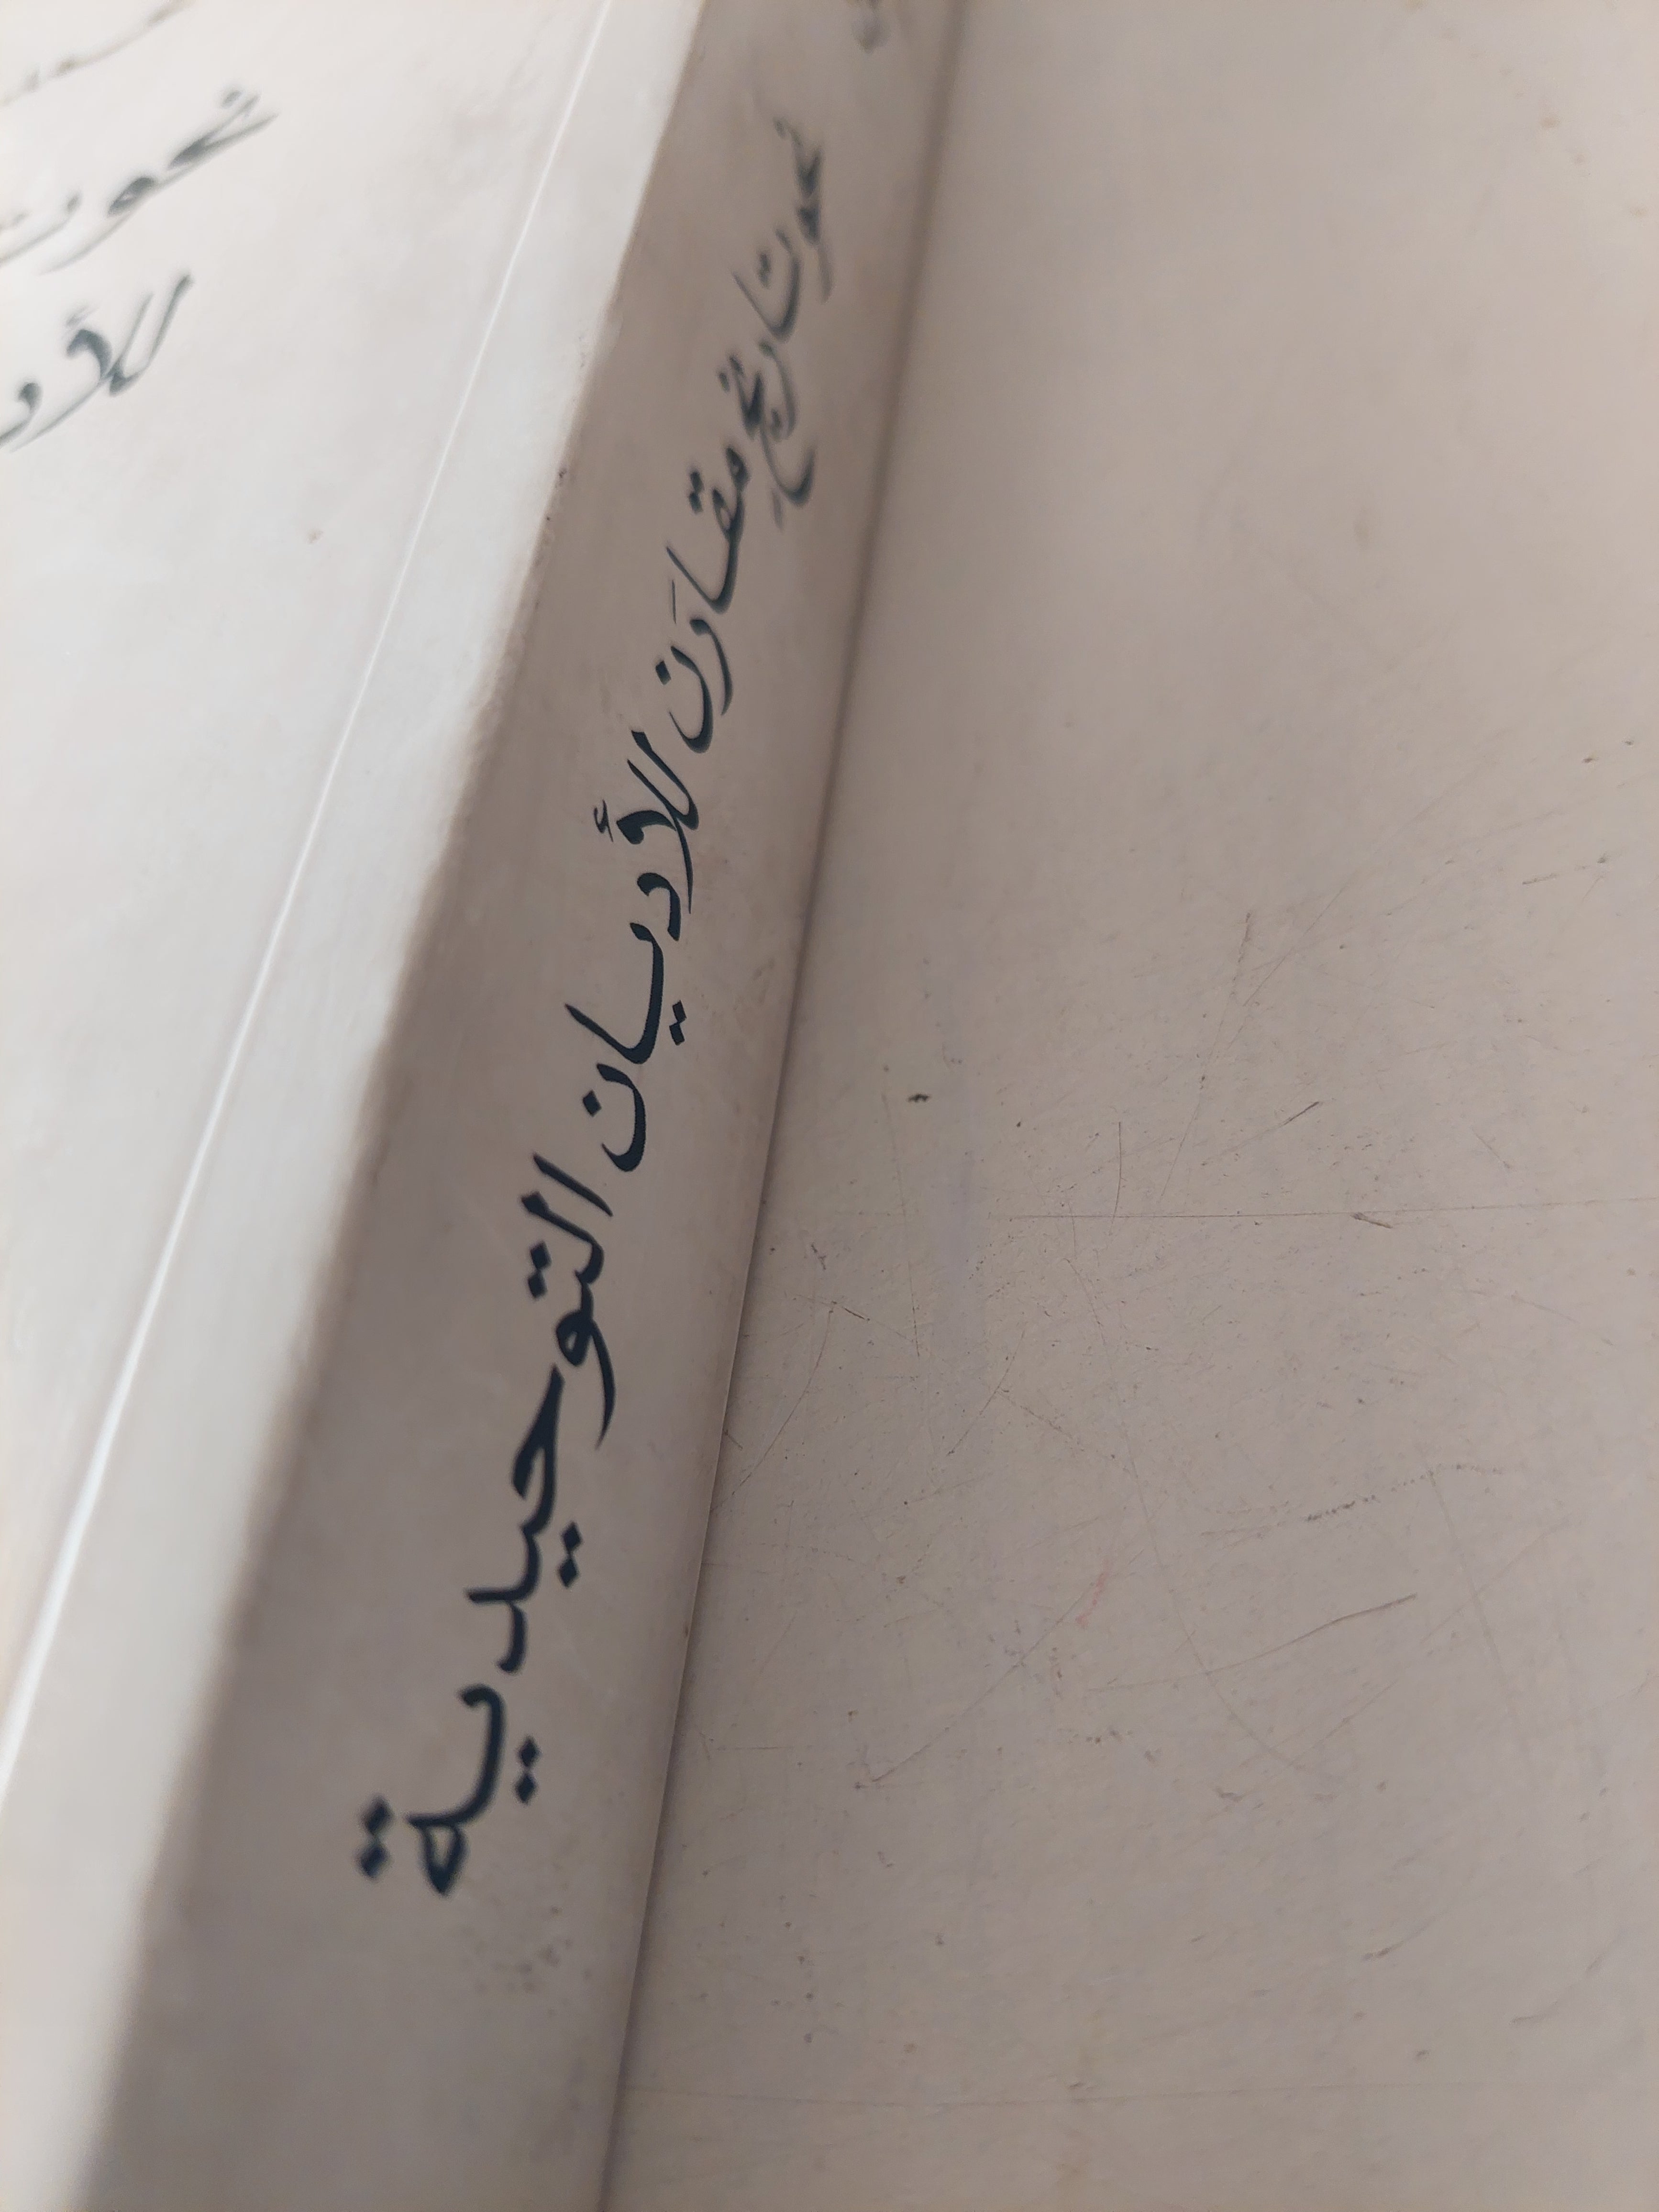 نحو تاريخ مقارن للأديان التوحيدية
نحو ت
للأد